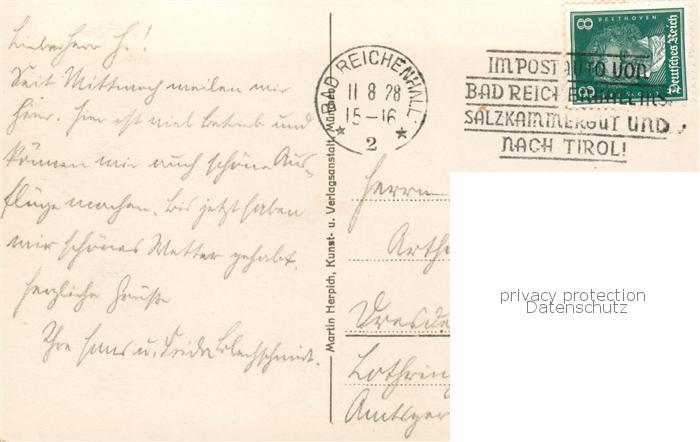 Lieber Herr H.!
Seit Mittwoch weilen wir
hier. Hier ist viel Betrieb und
können wir auch schöne Aus-
flüge machen. Bis jetzt haben
wir schönes Wetter gehabt.
Herzliche Grüße
Ihre Hans u. Frida Blechschmidt.
Martin Herpich, Kunst- u. Verlagsanstalt, München
BAD REICHENHALL
11 8 28
15-16
2
IM POSTAUTO VON
BAD REICHENHALL INS
SALZKAMMERGUT UND
NACH TIROL!
8 BEETHOVEN
Deutsches Reich
8
Herrn
Arth
Dresde
Lothrin
Amtsger
privacy protection
Datenschutz